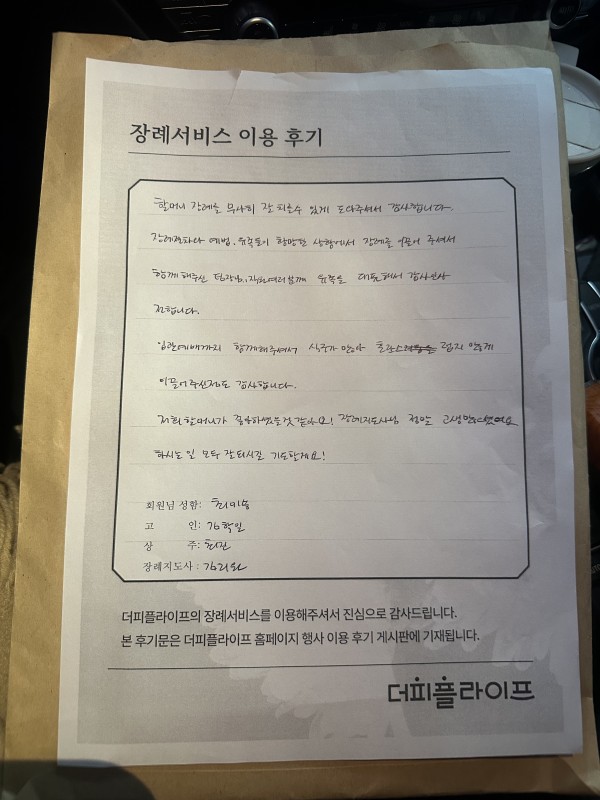 장례서비스 이용 후기
할머니 장례를 무사히 잘 치를수 있게 도와주셔서 감사합니다.
장례절차나 예법, 유족들이 황망한 상황에서 장례를 이끌어 주셔서
함께 해주신 팀장님, 유족을 대표해서 감사인사
전합니다.
입관예배까지 함께해주셔서 식구가 많아 혼란 럽지 않게
이끌어주신점도 감사합니다.
저희 할머니가 좋아하셨을것 같아요! 장례지도사님 정말 고생많으셨어요
하시는 일 모두 잘되시길 기도할게요!
회원님 성함:
고 인:
상 주: 최진
장례지도사 :
더피플라이프의 장례서비스를 이용해주셔서 진심으로 감사드립니다.
본 후기문은 더피플라이프 홈페이지 행사 이용 후기 게시판에 기재됩니다.
더피플라이프